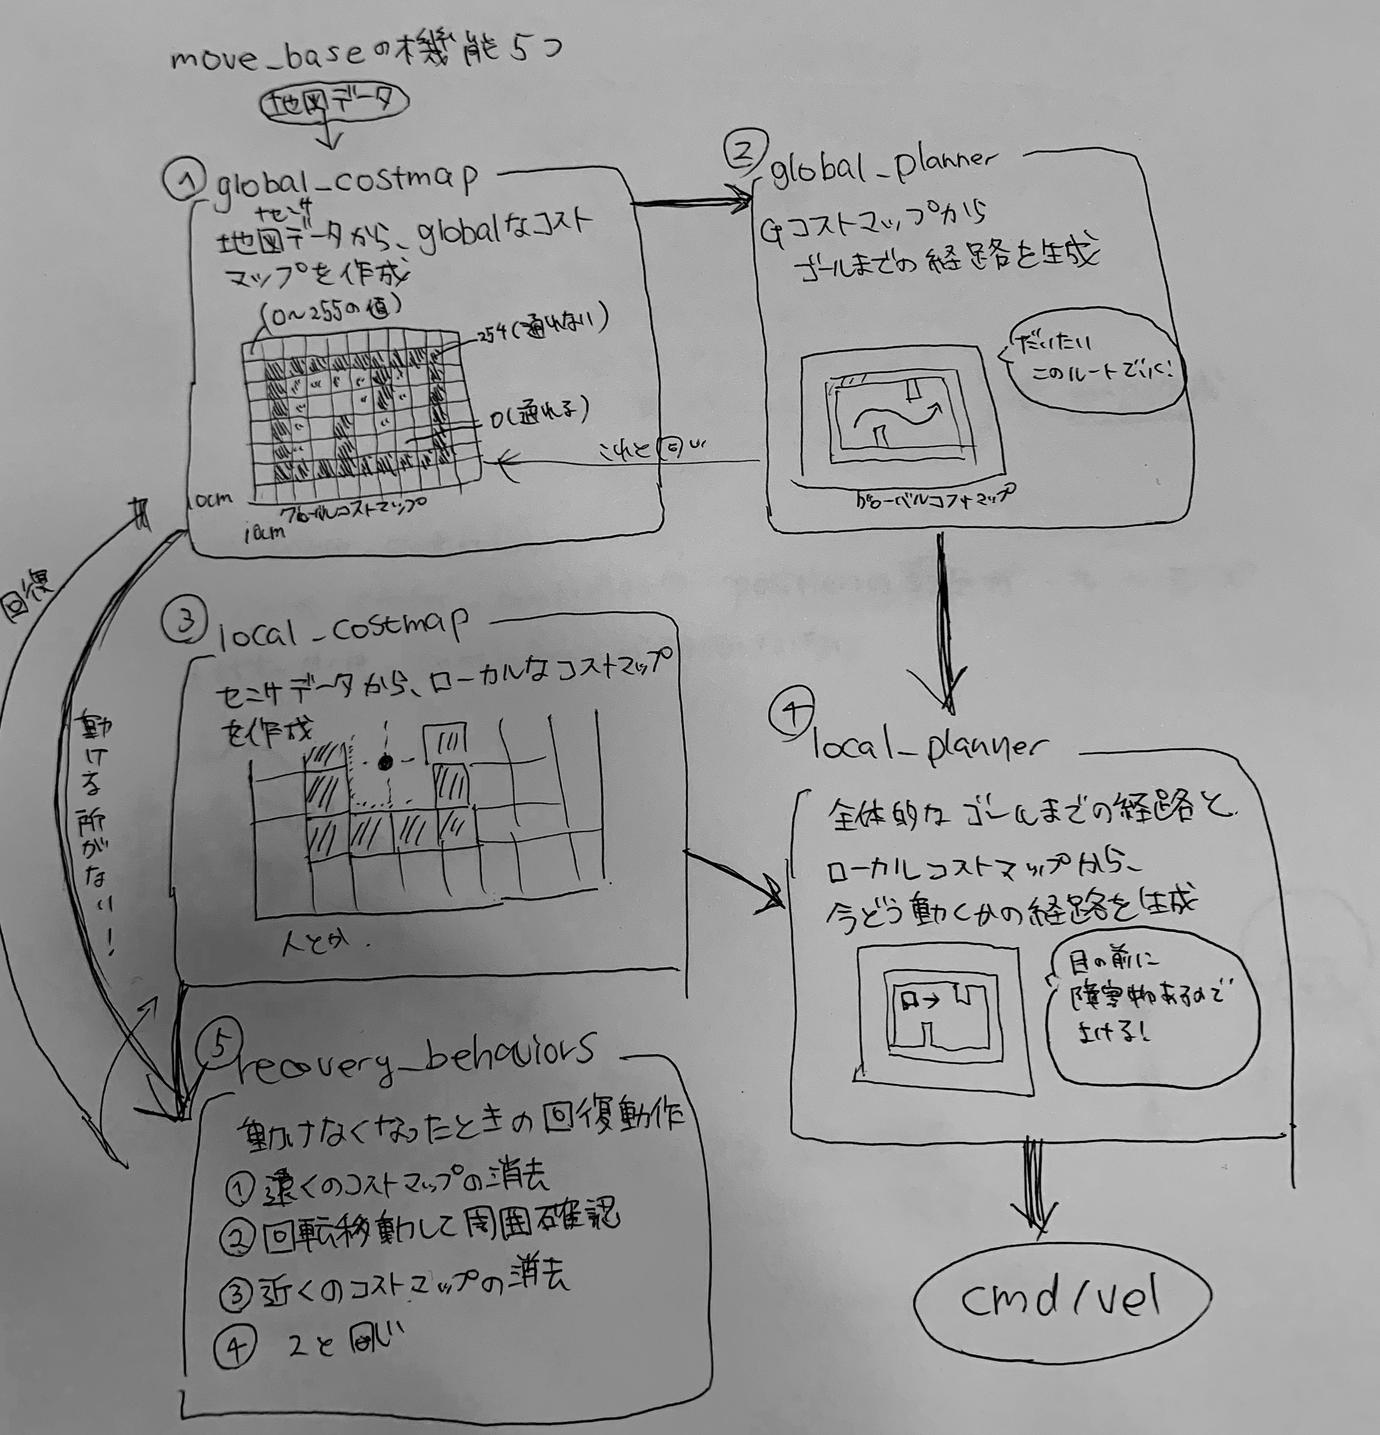 move_baseの機能5つ
地図データ
① global_costmap
センサ
地図データから、globalなコスト
マップを作成
(0〜255の値)
254(通れない)
0(通れる)
10cm
グローバルコストマップ
10cm
② global_planner
Gコストマップから
ゴールまでの経路を生成
だいたい
このルートでいく!
これと同じ
グローバルコストマップ
回復
動ける所がない!
③ local_costmap
センサデータから、ローカルなコストマップ
を作成
人とか.
④ local_planner
全体的なゴールまでの経路と、
ローカルコストマップから、
今どう動くかの経路を生成
目の前に
障害物あるので
よける!
⑤ recovery_behaviors
動けなくなったときの回復動作
① 遠くのコストマップの消去
② 回転移動して周囲確認
③ 近くのコストマップの消去
④ 2と同じ
cmd/vel